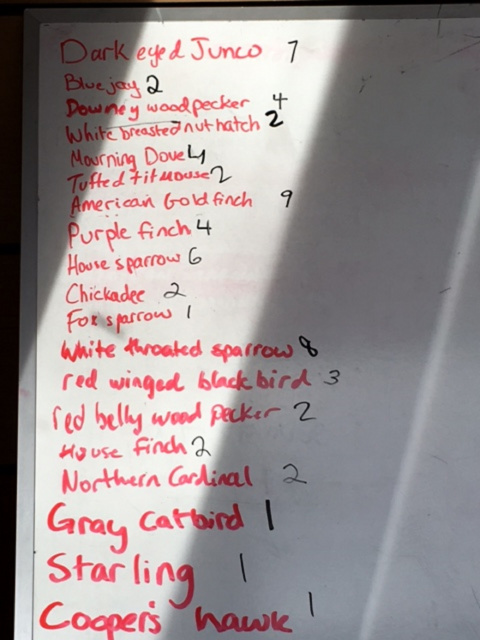 Dark eyed Junco 7
Blue jay 2
Downey woodpecker 4
White breasted nut hatch 2
Mourning Dove 4
Tufted titmouse 2
American Goldfinch 9
Purple finch 4
House sparrow 6
Chickadee 2
Fox sparrow 1
White throated sparrow 8
red winged blackbird 3
red belly wood pecker 2
House finch 2
Northern Cardinal 2
Gray Catbird 1
Starling 1
Cooper's hawk 1